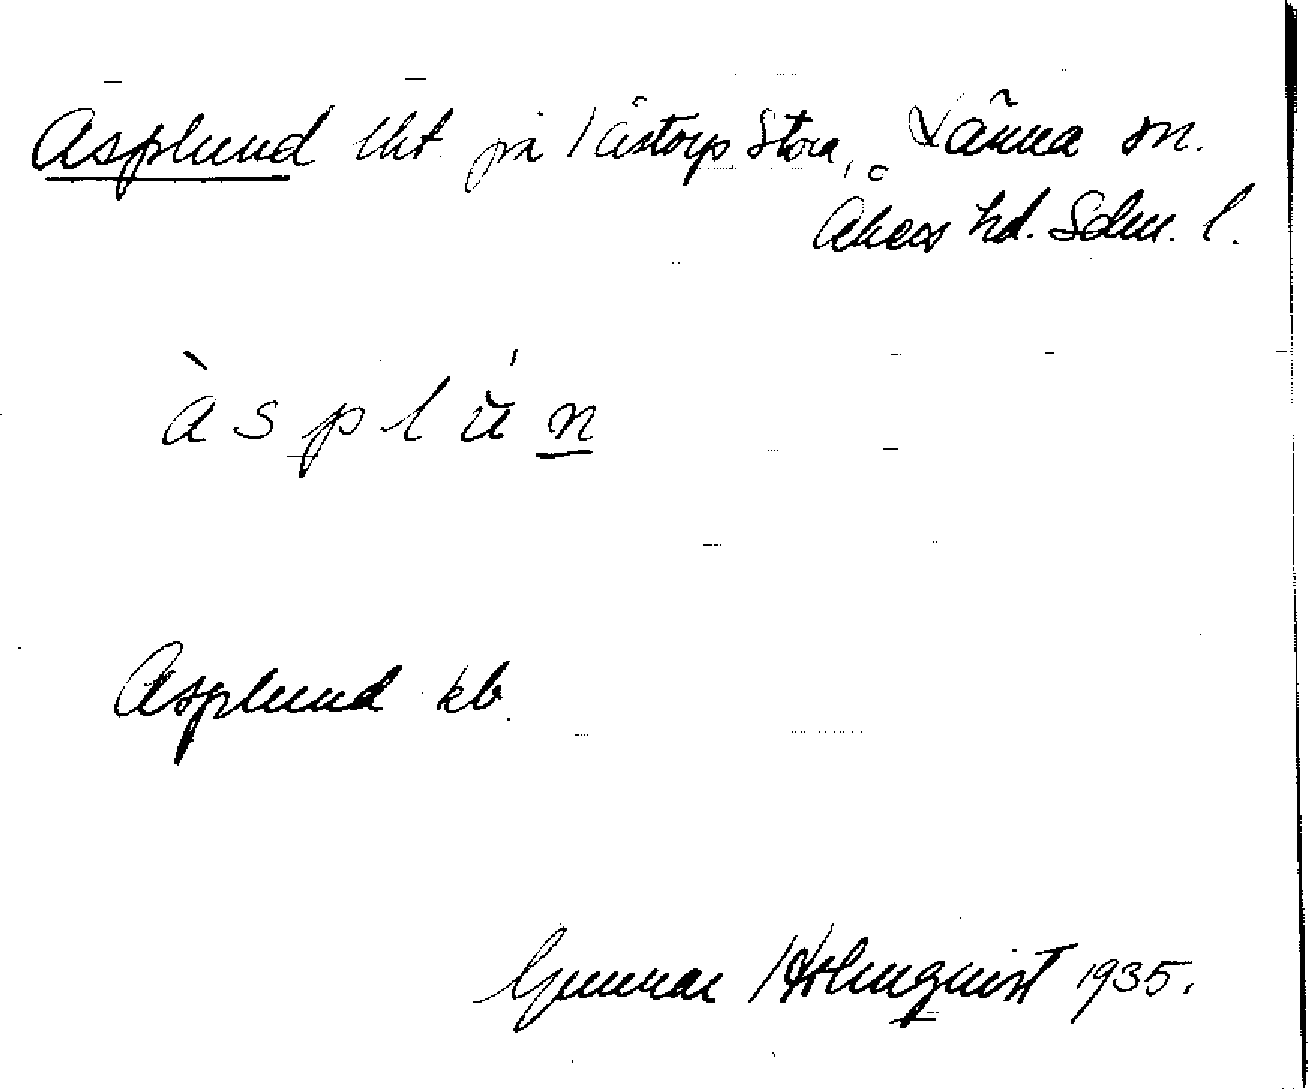 Asplund lht på Stora, Länna sn.
Åkers hd. Sdm. l.
à s p l ǔ n
Asplund kb.
Gunnar Holmquist 1935.